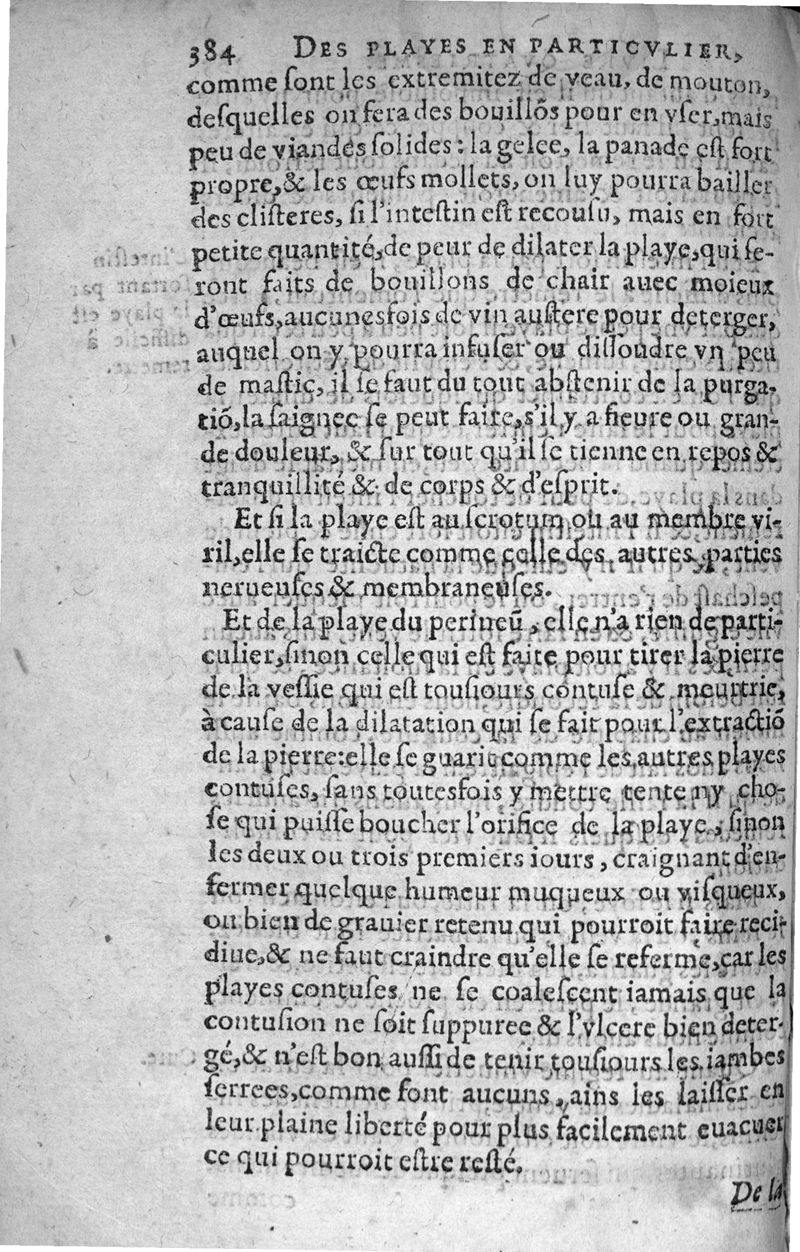 384 DES PLAYES EN PARTICVLIER,
comme ſont les extremitez de veau, de mouton,
deſquelles on fera des bouillõs pour en vſer, mais
peu de viandes ſolides : la gelee, la panade eſt fort
propre, & les œufs mollets, on luy pourra bailler
des cliſteres, ſi l'inteſtin eſt recouſu, mais en fort
petite quantité, de peur de dilater la playe, qui ſe-
ront faits de bouillons de chair auec moieux
d'œufs, aucunesfois de vin auſtere pour deterger,
auquel on y pourra infuſer ou diſſoudre vn peu
de maſtic, il ſe faut du tout abſtenir de la purga-
tiõ, la ſaignee ſe peut faire, s'il y a fieure ou gran-
de douleur, & ſur tout qu'il ſe tienne en repos &
tranquillité & de corps & d'eſprit.
Et ſi la playe eſt au ſcrotum ou au membre vi-
ril, elle ſe traicte comme celle des autres parties
nerueuſes & membraneuſes.
Et de la playe du perineũ, elle n'a rien de parti-
culier, ſinon celle qui eſt faite pour tirer la pierre
de la veſſie qui eſt touſiours contuſe & meurtrie,
à cauſe de la dilatation qui ſe fait pour l'extractiõ
de la pierre: elle ſe guarit comme les autres playes
contuſes, ſans toutesfois y mettre tente ny cho-
ſe qui puiſſe boucher l'orifice de la playe, ſinon
les deux ou trois premiers iours, craignant d'en-
fermer quelque humeur muqueux ou viſqueux,
ou bien de grauier retenu qui pourroit faire reci-
diue, & ne faut craindre qu'elle ſe referme, car les
playes contuſes ne ſe coaleſcent iamais que la
contuſion ne ſoit ſuppuree & l'vlcere bien deter-
gé, & n'eſt bon auſſi de tenir touſiours les iambes
ſerrees, comme font aucuns, ains les laiſſer en
leur plaine liberté pour plus facilement euacuer
ce qui pourroit eſtre reſté.
De la